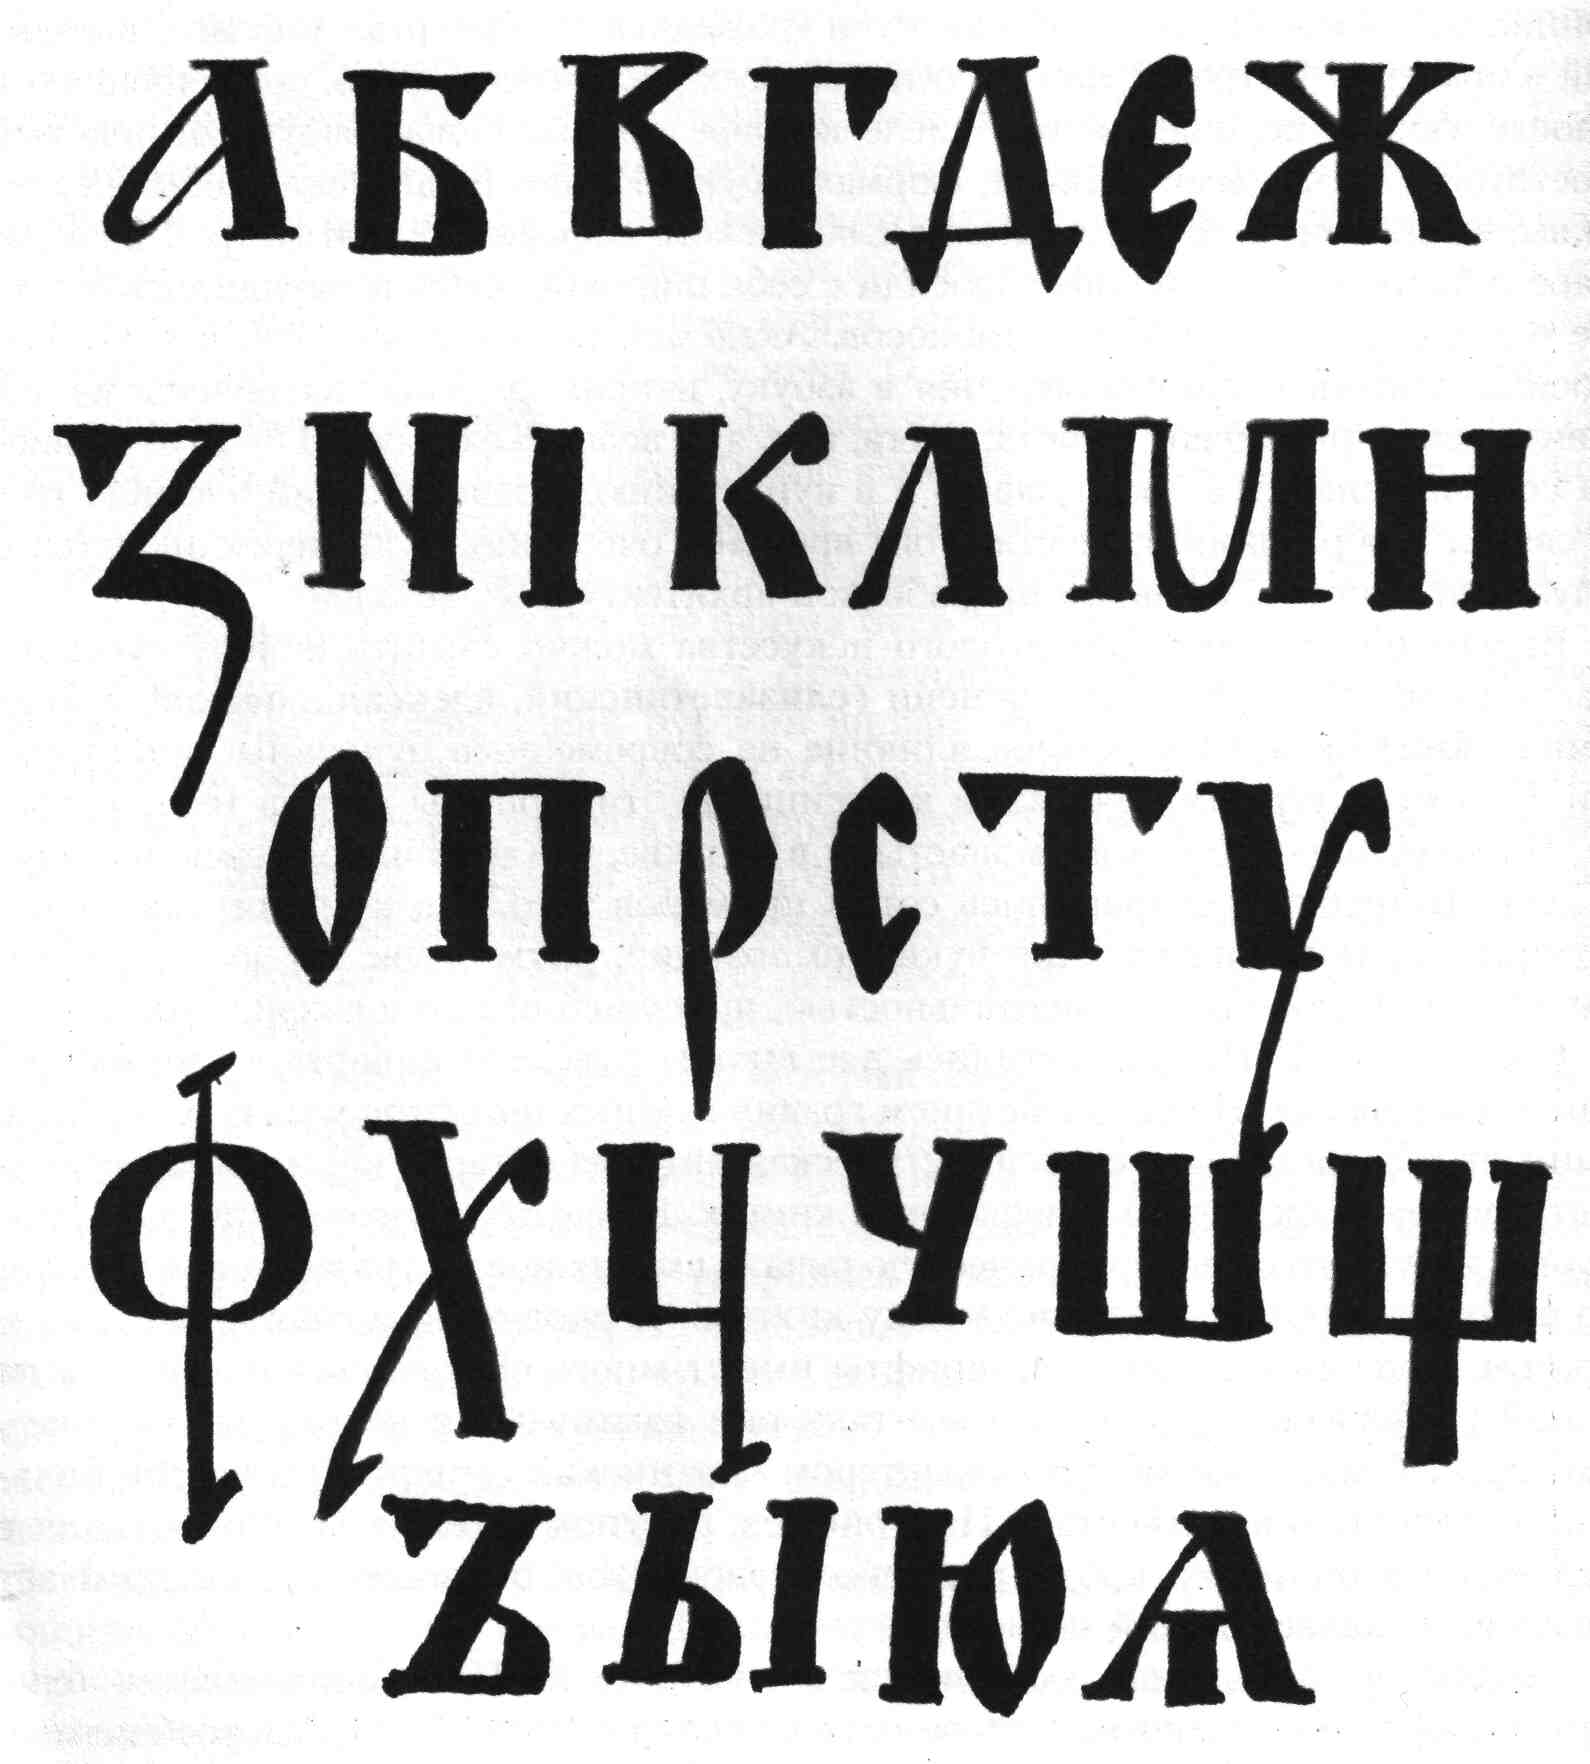 А Б В Г Д Є Ж
З N І К Л М Н
О П Р С Т У
Ф Х Ц Ч Ш Щ
Ъ Ы Ю Ѧ